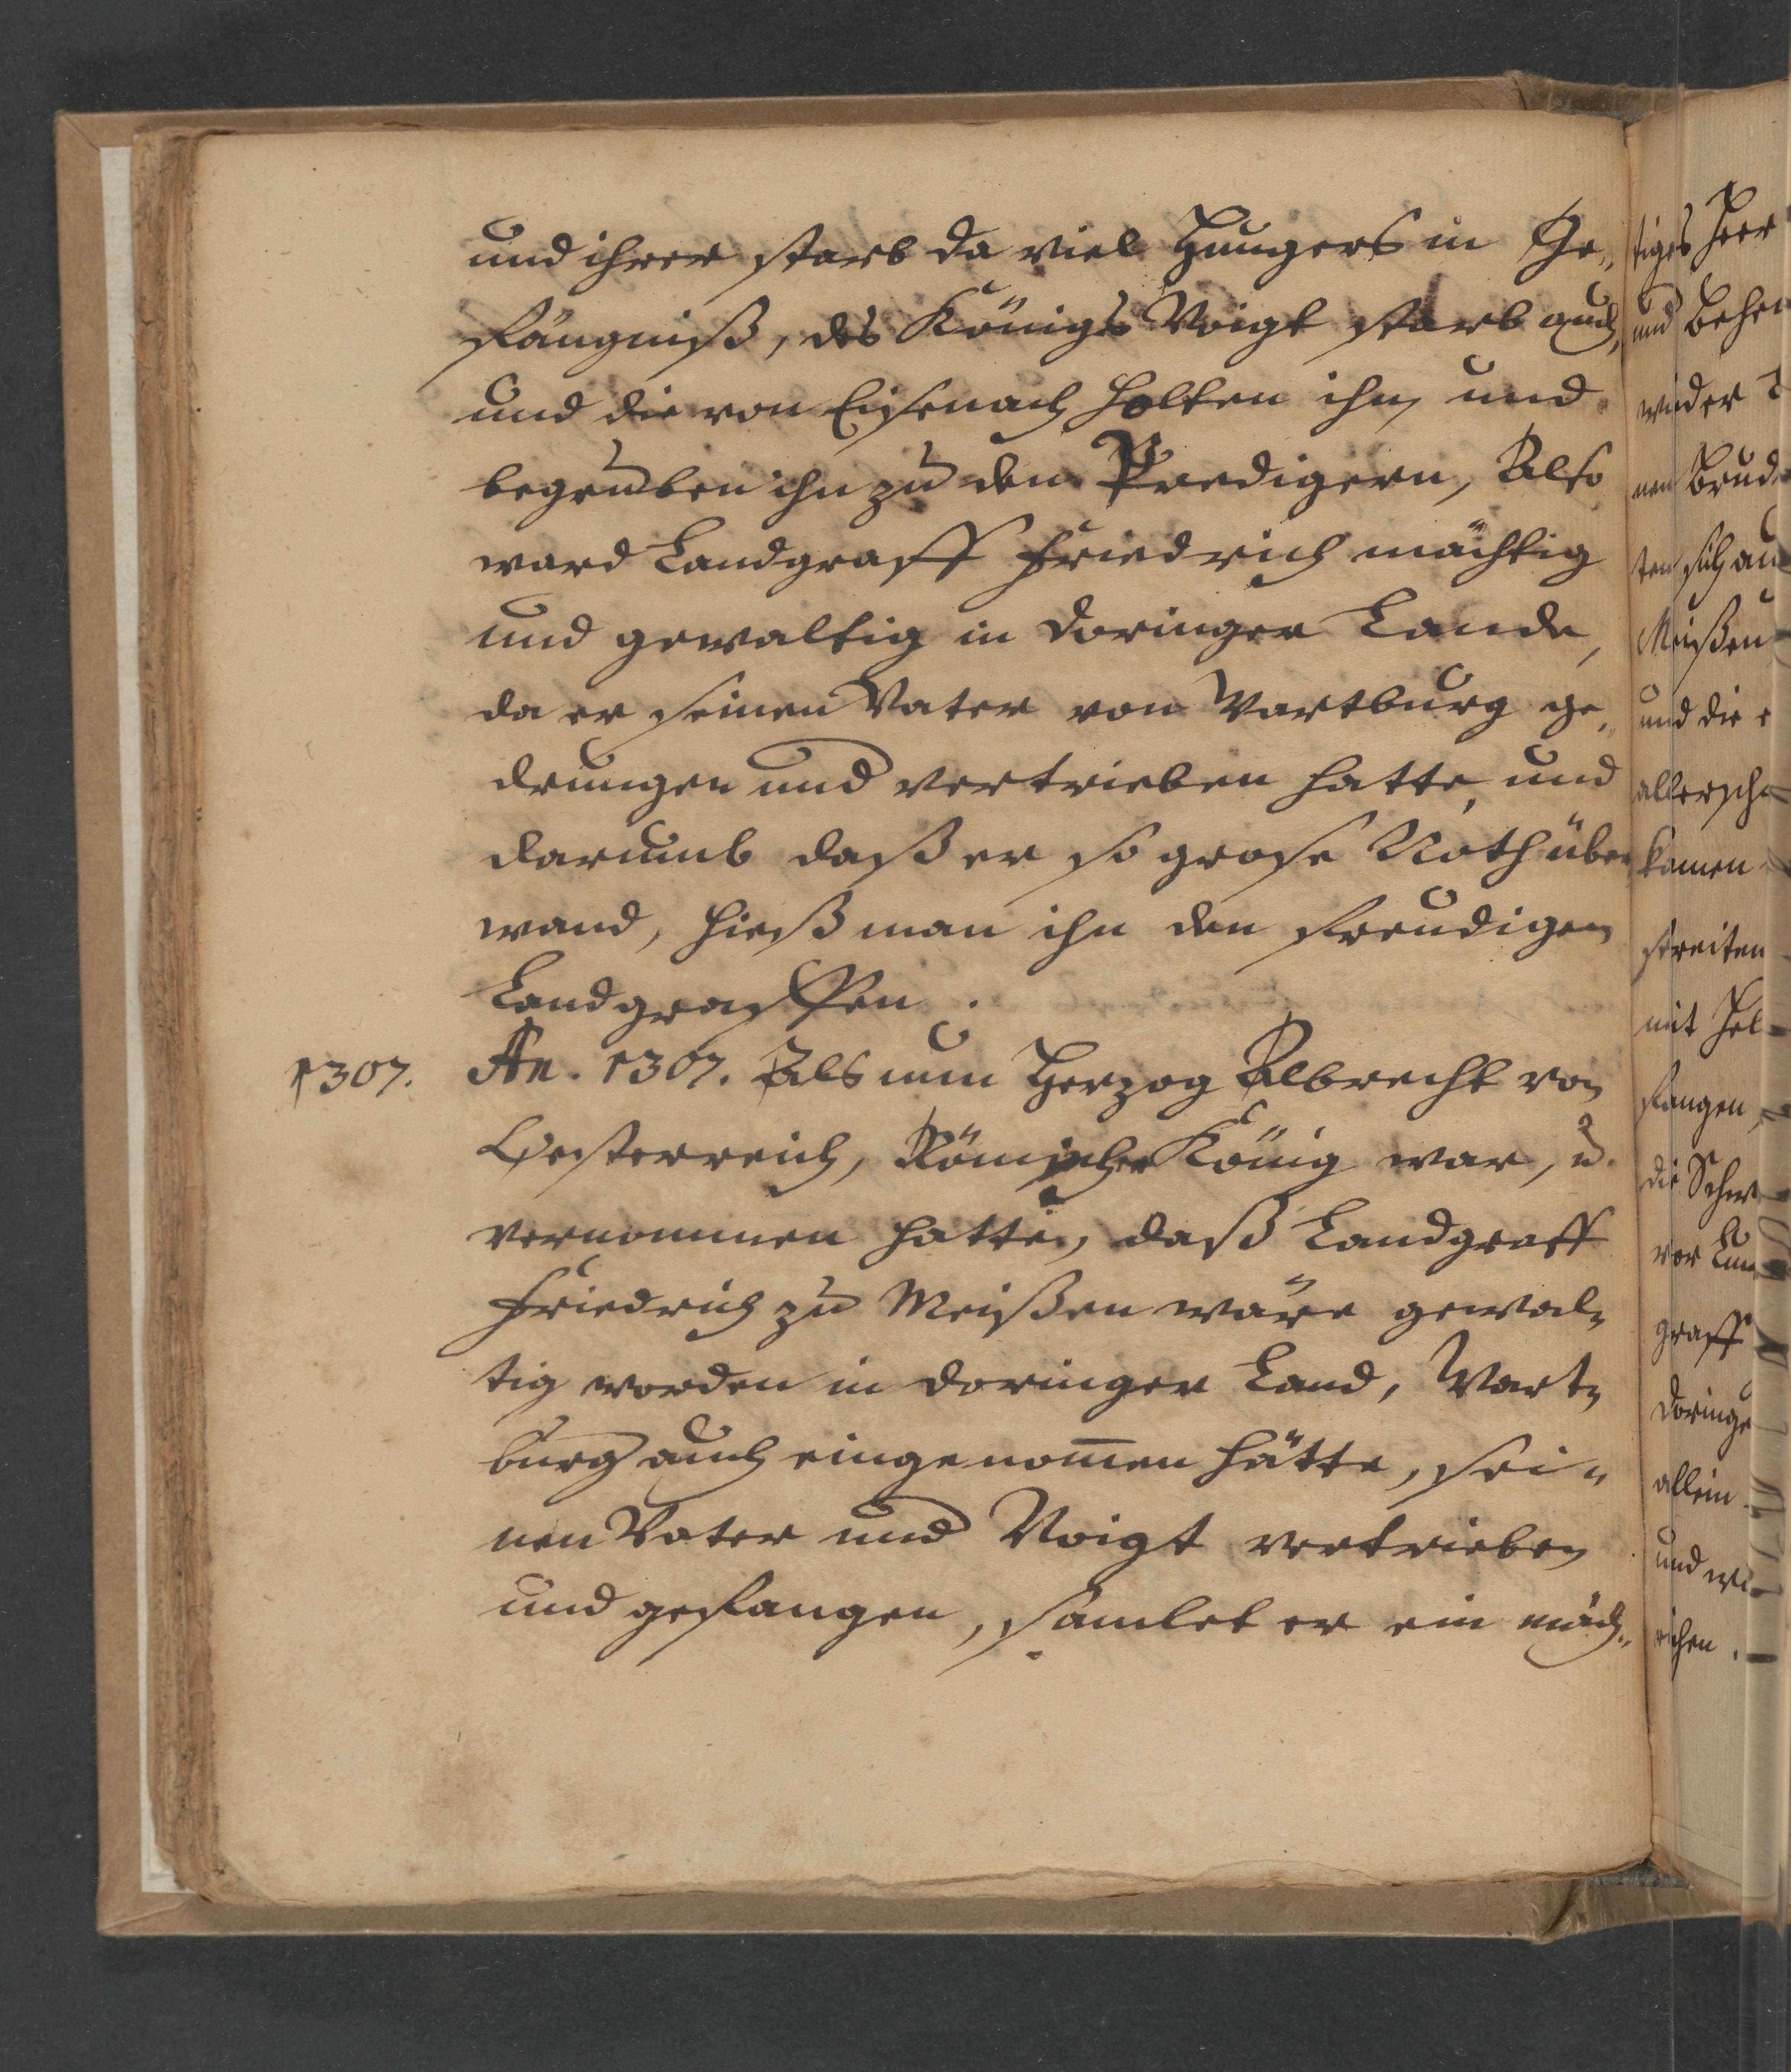 und ihrer starb da viel Hungers in Ge-
fängniß, des Königs Voigt starb auch,
und die von Eisenach holten ihn und
begruben ihn zu den Predigern, Also
ward Landgraff Friedrich mächtig
und gewaltig in Doringer Lande,
da er seinen Vater von Wartburg ge-
drungen und vertrieben hatte, und
darumb daß er so grose Noth über-
wand, hieß man ihn den freudigen
Landgraffen.
1307. An. 1307. Als nun Herzog Albrecht von
Oesterreich, Römischer König war, u.
vernommen hatte, daß Landgraff
Friedrich zu Meißen wäre gewal-
tig worden in Doringer Land, Wart-
burg auch eingenom̅en hätte, sei-
nen Vater und Voigt vertrieben
und gefangen, samlet er ein mäch-
tiges Heer
und
wieder
nen
ten sich
Meißen
und die
kamen
streiten
mit
fangen,
die
vor
graff
Doringe
allein
und